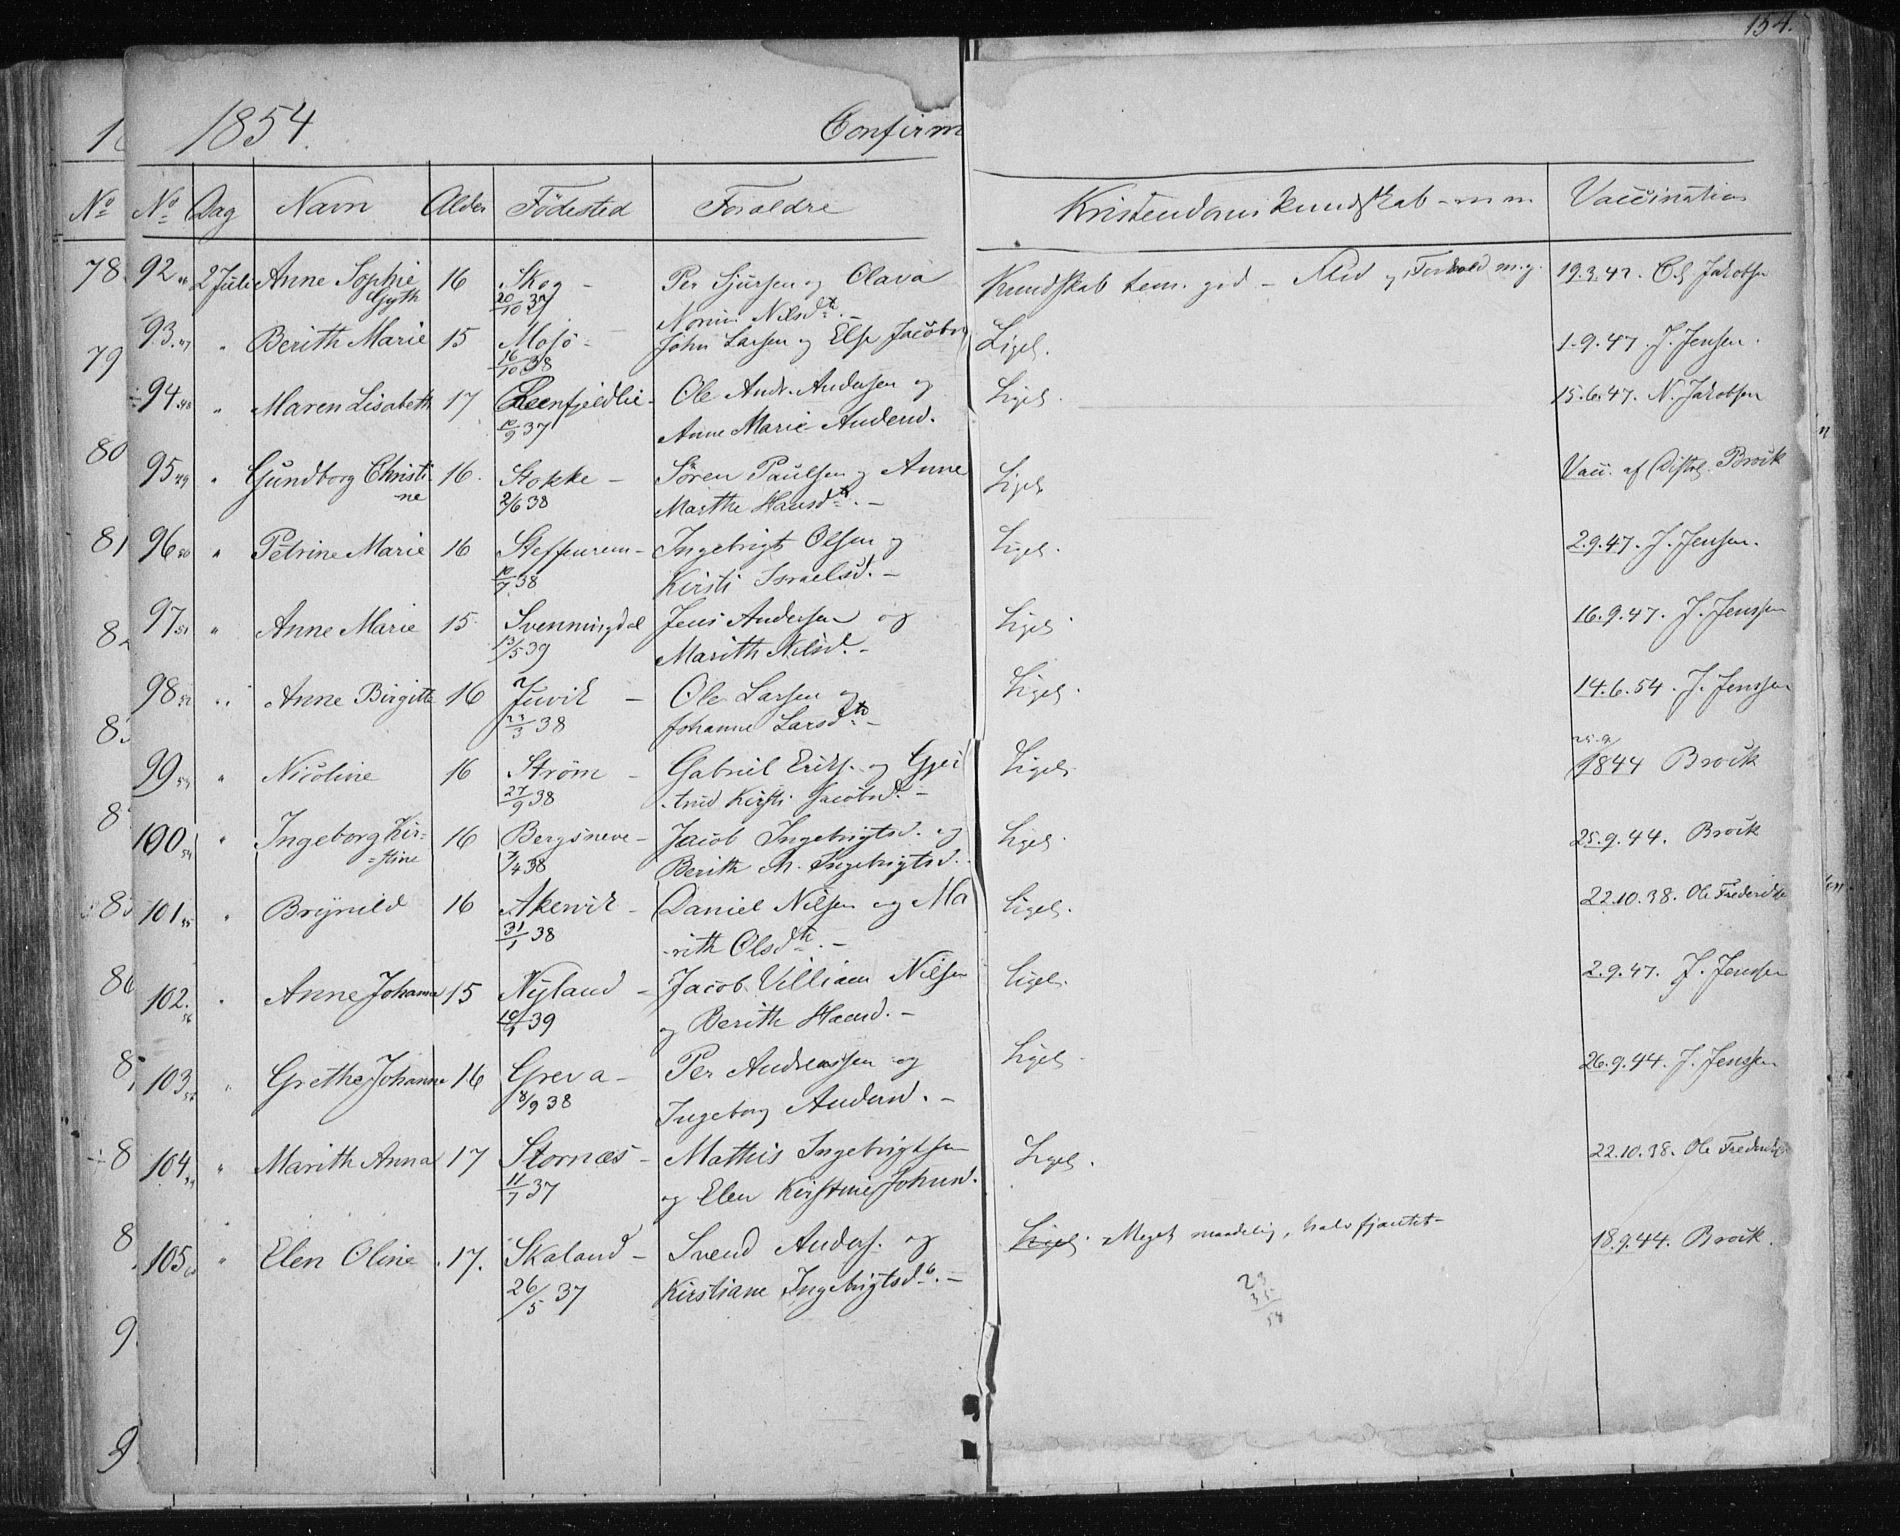 154.
1854. Confirm
No Dag Navn Alder Födested Forældre Kristendomskundskab m.m. Vaccination
78. 92 2 Juli Anne Sophie 16 Skog - Per Sjursen og Olava Kundskab tem. god - Flid og Forhold m.g. 19.3.47. Jakobsen
Gyth 20/10 37 Nilsdtr. -
79 93. " Berith Marie 15 Mosö - John Larsen og Else Jacobs Ligel. 1.9.47. J. Jensen.
16/10 38
÷94 " Maren Lisabeth 17 Ole Andr. Andersen og Ligel. 15.6.47. N. Jakobsen
10/9 37 Anne Marie Andersd.
80 95 49 " Gundborg Christi 16. Stokke - Sören Paulsen og Anne Ligel. Vacc. af Distrl. Brock
-ne 2/6 38 Marthe Hansdtr. -
81 96 50 " Petrine Marie 16 Steffenrem - Ingebrigt Olsen og Ligel. 2.9.47. J. Jensen.
10/7 38 Kirsti Israelsd. -
82 97 51 " Anne Marie 15 Svenningdal Jens Andersen og Ligel. 16.9.47. J. Jenssen
13/5 39 Marith Nilsd. -
83 98 52 " Anne Birgitte 16 Juvik - Ole Larsen og Ligel. 14.6.54. J. Jenssen
23/3 38 Johanne Larsdtr -
99 53 " Nicoline 16 Ström - Gabriel Eriks. og Gjer Ligel. 25.9/1844 Brock
27/9 38 -trud Kirsti Jacobsd. -
8 100 54 " Ingeborg Kir= 16 Bergsneve - Jacob Ingebrigtsd. og Ligel. 25.9.44. Brock
=stine 7/4 38 Berith M. Ingebrigtsd.
85 101 55 " Brynild 16 Akervik - Daniel Nilsen og Ma Ligel. 22.10.38. Ole Frederikse
31/1 38 -rith Olsdtr. -
86 102. 56 " Anne Johanna 15 Nyland - Jacob Villiam Nilsen Ligel. 2.9.47. J. Jenssen
10/1 39 og Berith Hansd. -
8 103 57 " Grethe Johanne 16 Greva - Per Andreassen og Ligel. 26.9.44. J. Jenssen
8/9 38 Ingeborg Andersd. -
÷8 104. " Marith Anna 17 Stornæs - Mathis Ingebrigtsen Ligel. 22.10.38. Ole Frederiks
11/7 37 og Elen Kirstine Johnsd.
8 105 " Elen Oline 17. Skaland - Svend Anders. og Ligel. Meget maadelig, halv fjantet - 18.9.44. Brock.
26/5 37 Kirstiane Ingebrigtsdtr. -
9
9